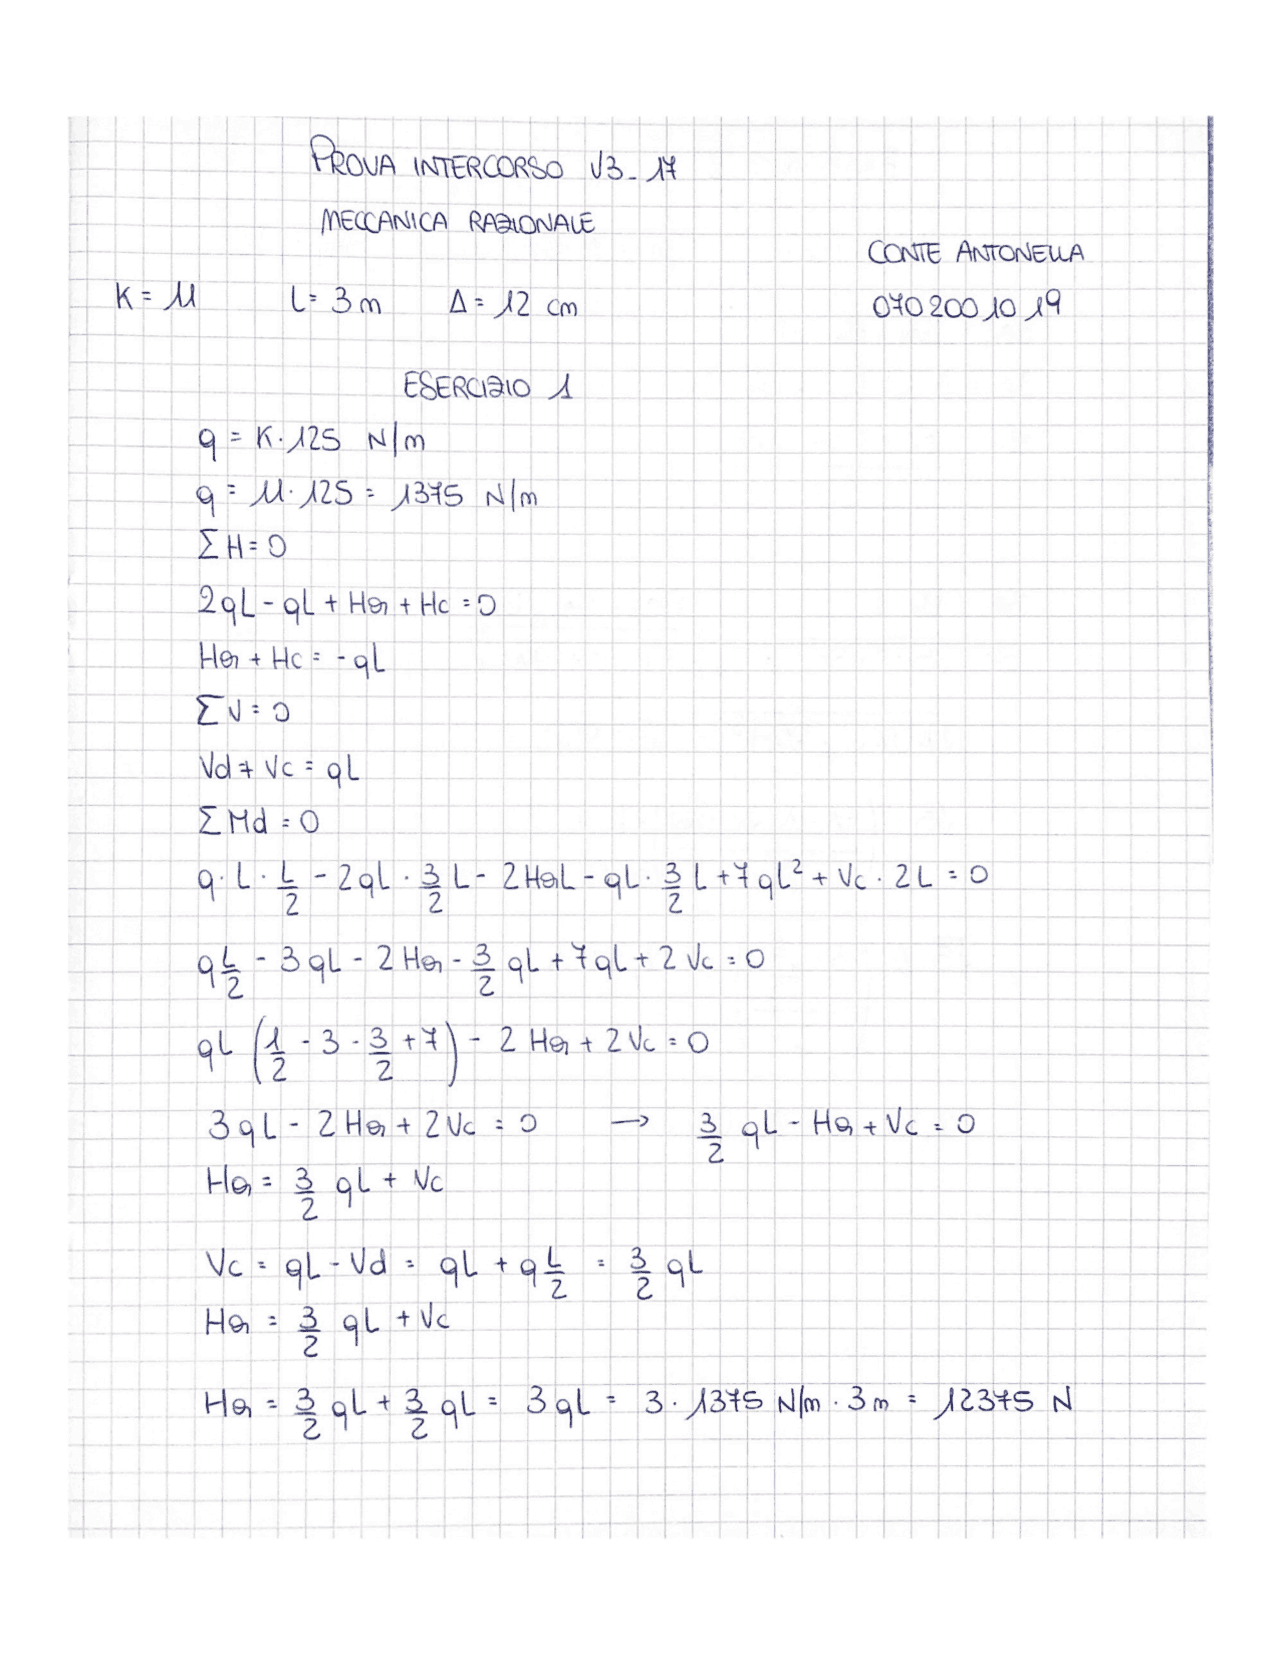 PROVA INTERCORSO V3_17
MECCANICA RAZIONALE
CONTE ANTONELLA
K = 11 L = 3 m Δ = 12 cm
0702001019
ESERCIZIO 1
q = K · 125 N/m
q = 11 · 125 = 1375 N/m
ΣH = 0
2qL - qL + Ha + Hc = 0
Ha + Hc = -qL
ΣV = 0
Vd + Vc = qL
ΣMd = 0
q · L · L/2 - 2qL · 3/2 L - 2HaL - qL · 3/2 L + 7qL² + Vc · 2L = 0
q L/2 - 3qL - 2Ha - 3/2 qL + 7qL + 2Vc = 0
qL (1/2 - 3 - 3/2 + 7) - 2Ha + 2Vc = 0
3qL - 2Ha + 2Vc = 0 → 3/2 qL - Ha + Vc = 0
Ha = 3/2 qL + Vc
Vc = qL - Vd = qL + q L/2 = 3/2 qL
Ha = 3/2 qL + Vc
Ha = 3/2 qL + 3/2 qL = 3qL = 3 · 1375 N/m · 3m = 12375 N